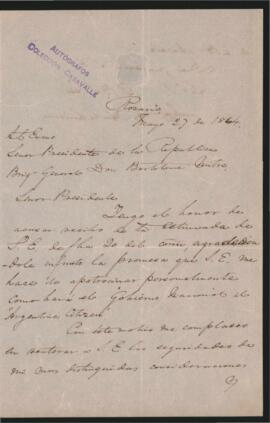 AUTÓGRAFOS
COLECCIÓN CASAVALLE
Rosario
Mayo 27 de 1864.
Al Exmo
Señor Presidente de la Republica
Brigr General Don Bartolomé Mitre
Señor Presidente
Tengo el honor de
acusar recibo de la estimada de
S.E. de fha 20 del como agradecien
dole infinito la promesa que S.E. me
hace de apotrocinar personalmente
como hará el Gobierno Nacional el
"Argentine Citizen"
Con este motivo me complasco
en reiterar a S.E. las seguridades de
mi mas distinguidas consideraciones